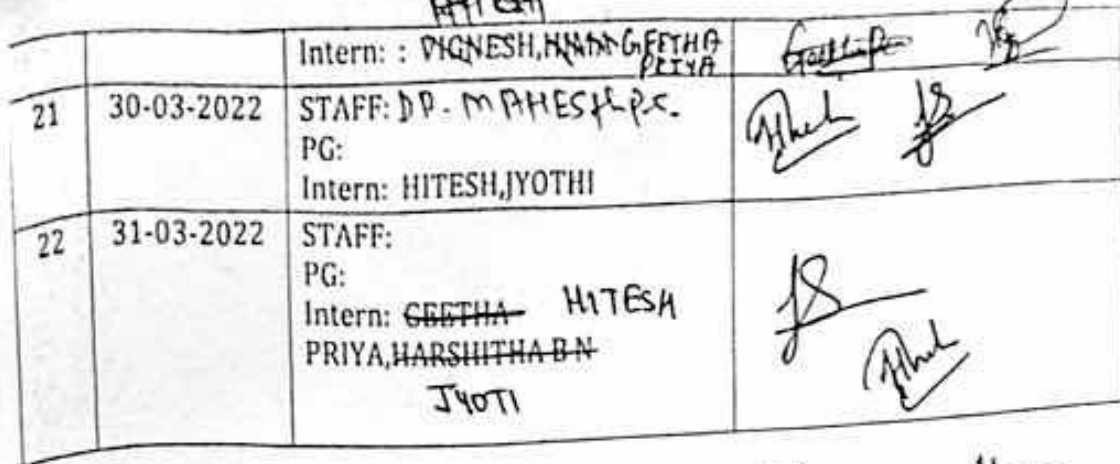 HITESH
Intern: : VIGNESH, GEETHA
PRIYA
21 30-03-2022 STAFF: DR. MAHESH P.C.
PG:
Intern: HITESH,JYOTHI
22 31-03-2022 STAFF:
PG:
Intern: GEETHA HITESH
PRIYA,HARSHITHA B N
JYOTI